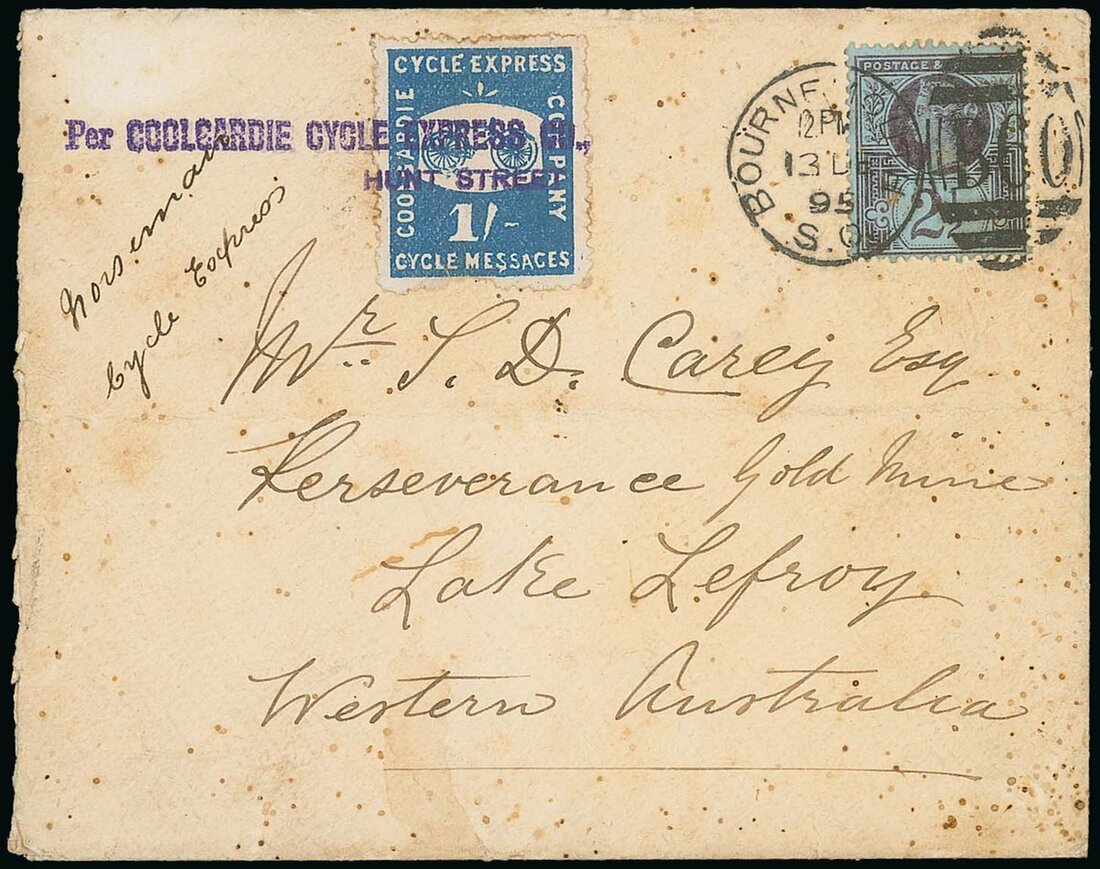 CYCLE EXPRESS
COOLGARDIE
COMPANY
1/-
CYCLE MESSAGES
Per COOLGARDIE CYCLE EXPRESS CO.,
HUNT STREET
POSTAGE &
2½
BOURNE
12 PM
13 DE
95
S.O
Norseman
Cycle Express
Mr. T. D. Carey Esq
Perseverance Gold Mine
Lake Lefroy
Western Australia